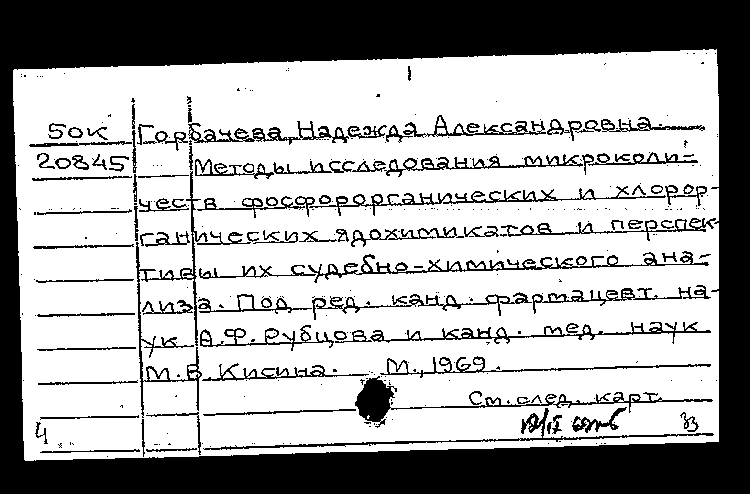 1
БОК Горбачева, Надежда Александровна.
20845 Методы исследования микроколи-
честв фосфорорганических и хлорор-
ганических ядохимикатов и перспек-
тивы их судебно-химического ана-
лиза. Под ред. канд. фармацевт. на-
ук А.Ф. Рубцова и канд. мед. наук
М.В. Кисина. М., 1969.
См. след. карт.
4 33